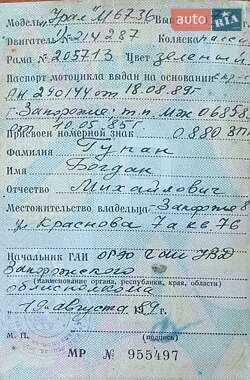 AUTO RIA
Модель „Урал" М 67-36 Вып
Двигатель № 214287 Коляска пасс
Рама № 205713 Цвет зеленый
Паспорт мотоцикла выдан на основании
240144 от 18.08.89г.
г. Запорожье т.п. МЖ 06858
10.05.85г.
Присвоен номерной знак 0880 ЗП
Фамилия Гупан
Имя Богдан
Отчество Михайлович
Местожительство владельца Запорожье
ул Краснова 7а кв. 76
Начальник ГАИ ОРЭО ГАИ УВД
Запорожского
(наименование органа, республики, края, области)
облисполкома
„19" августа 1989г.
М. П. (подпись)
МР № 955497